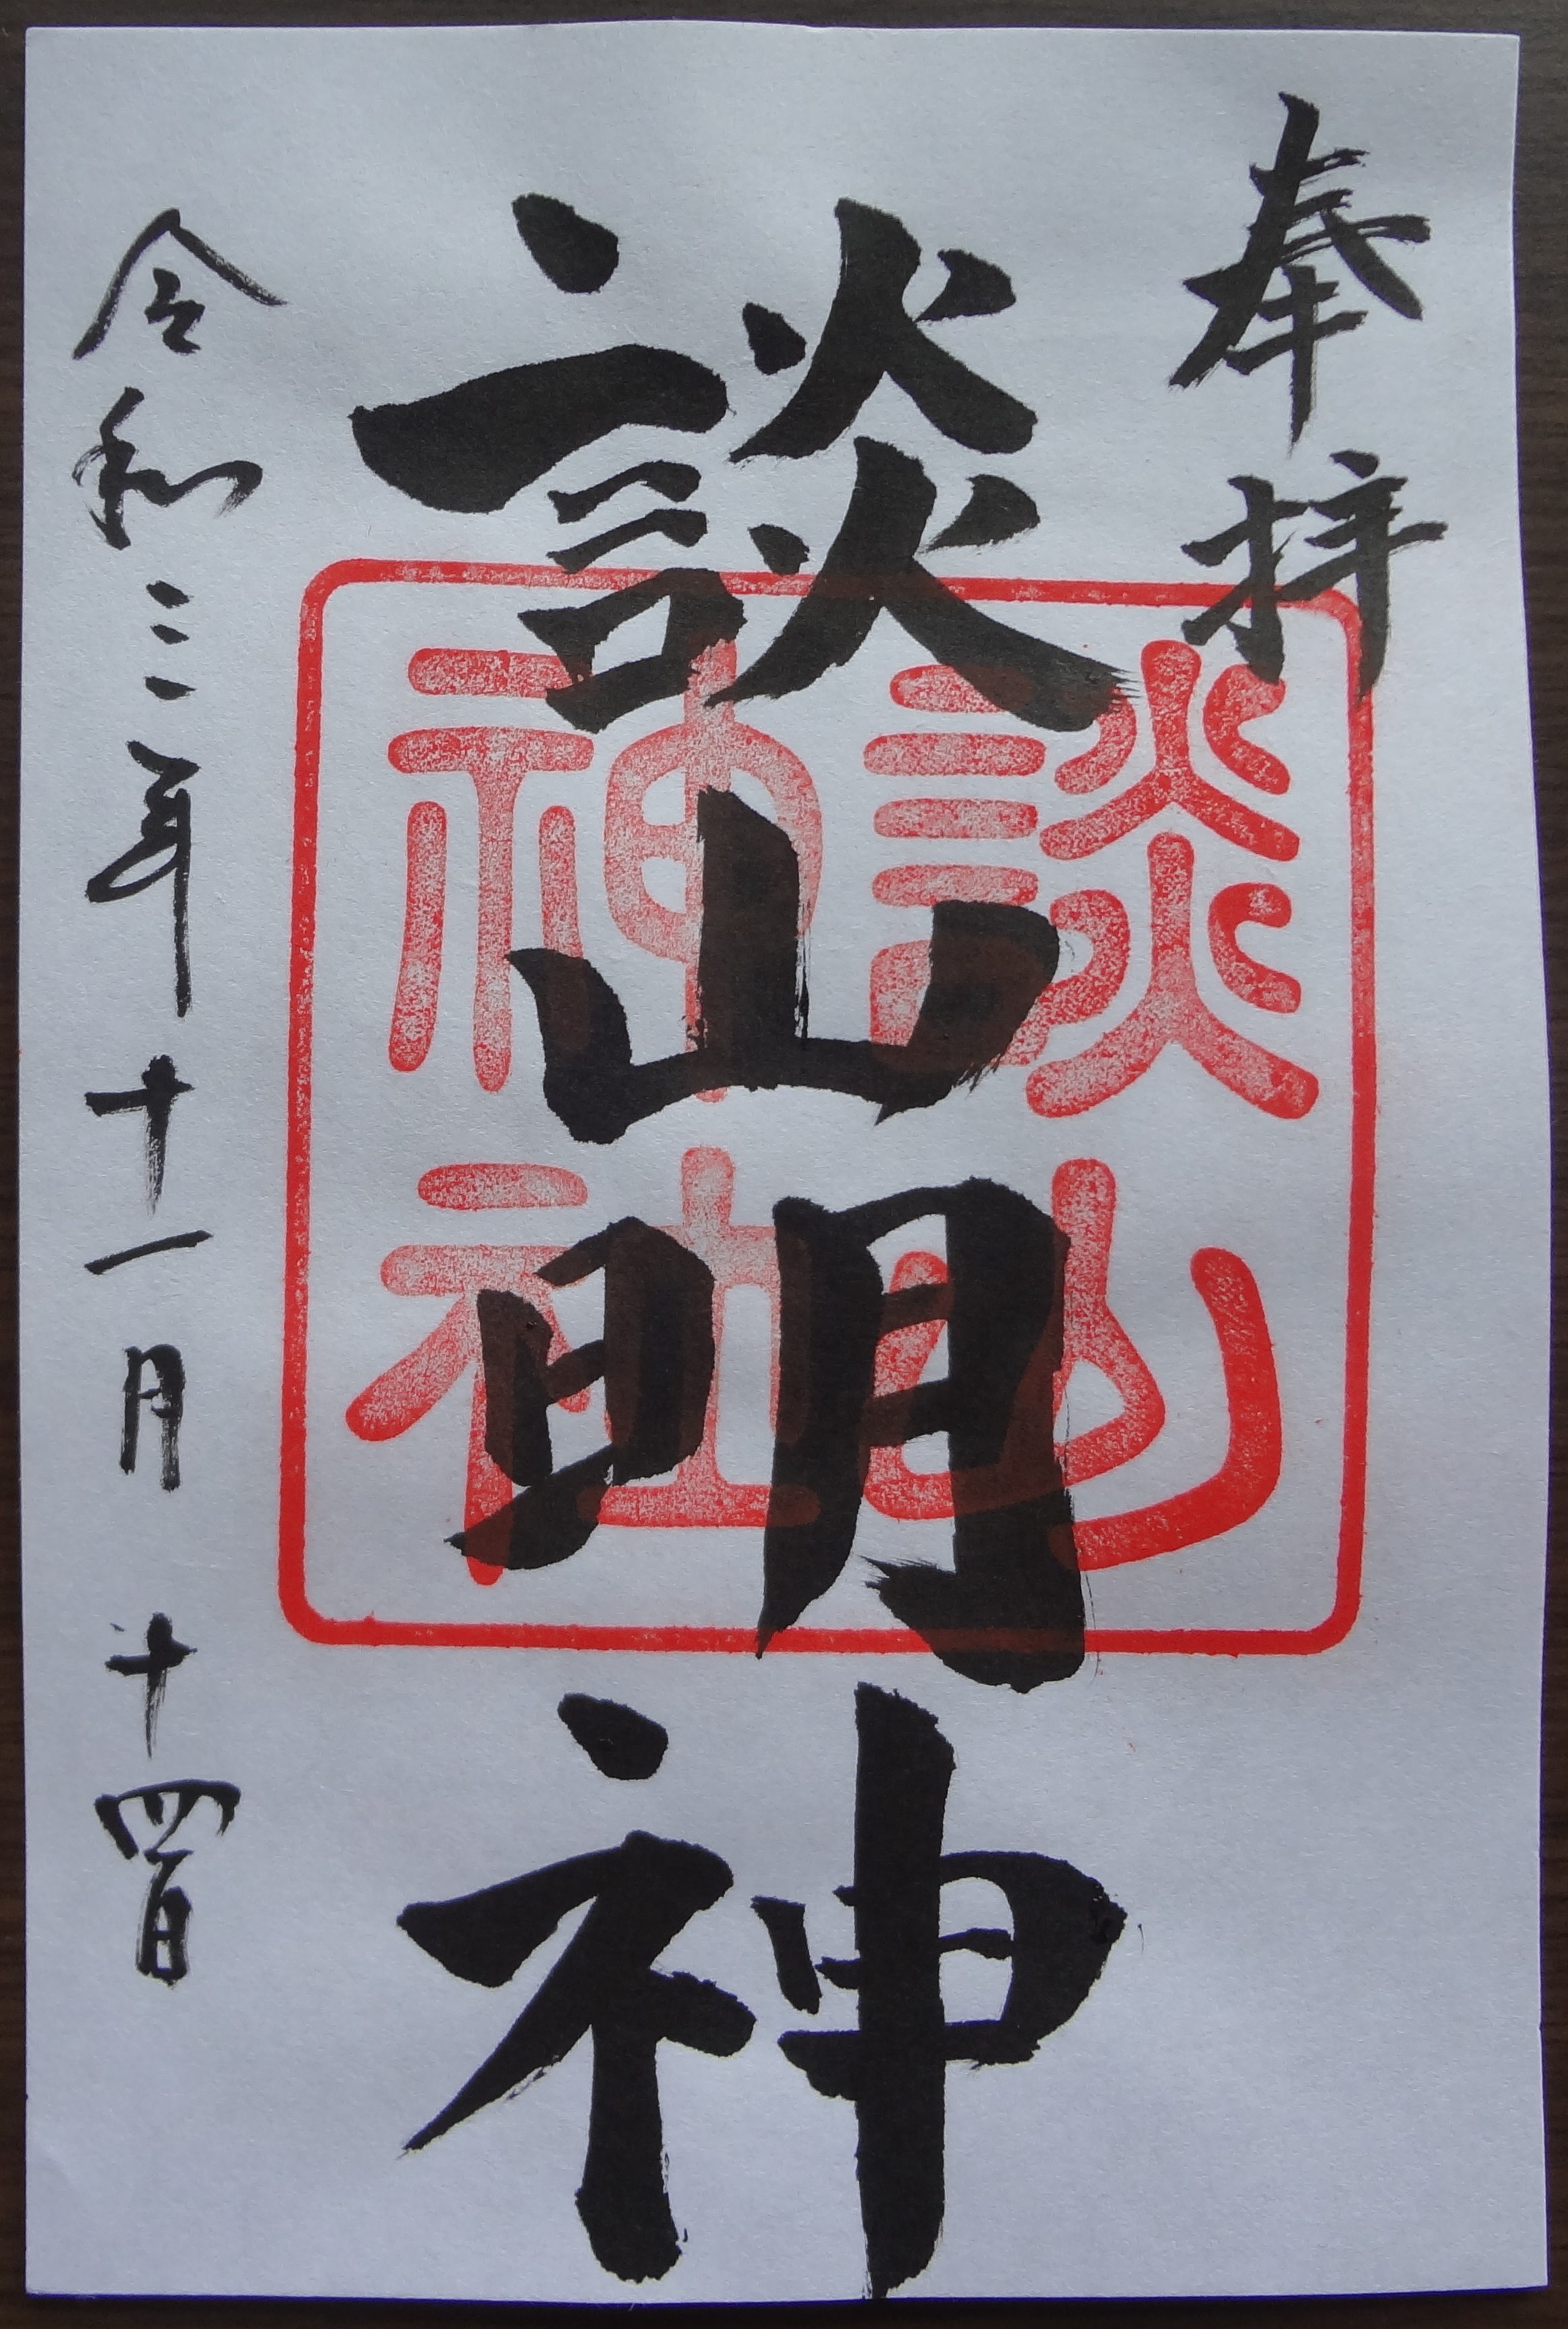 奉拝
談山明神
談山
神社
令和三年十一月十四日